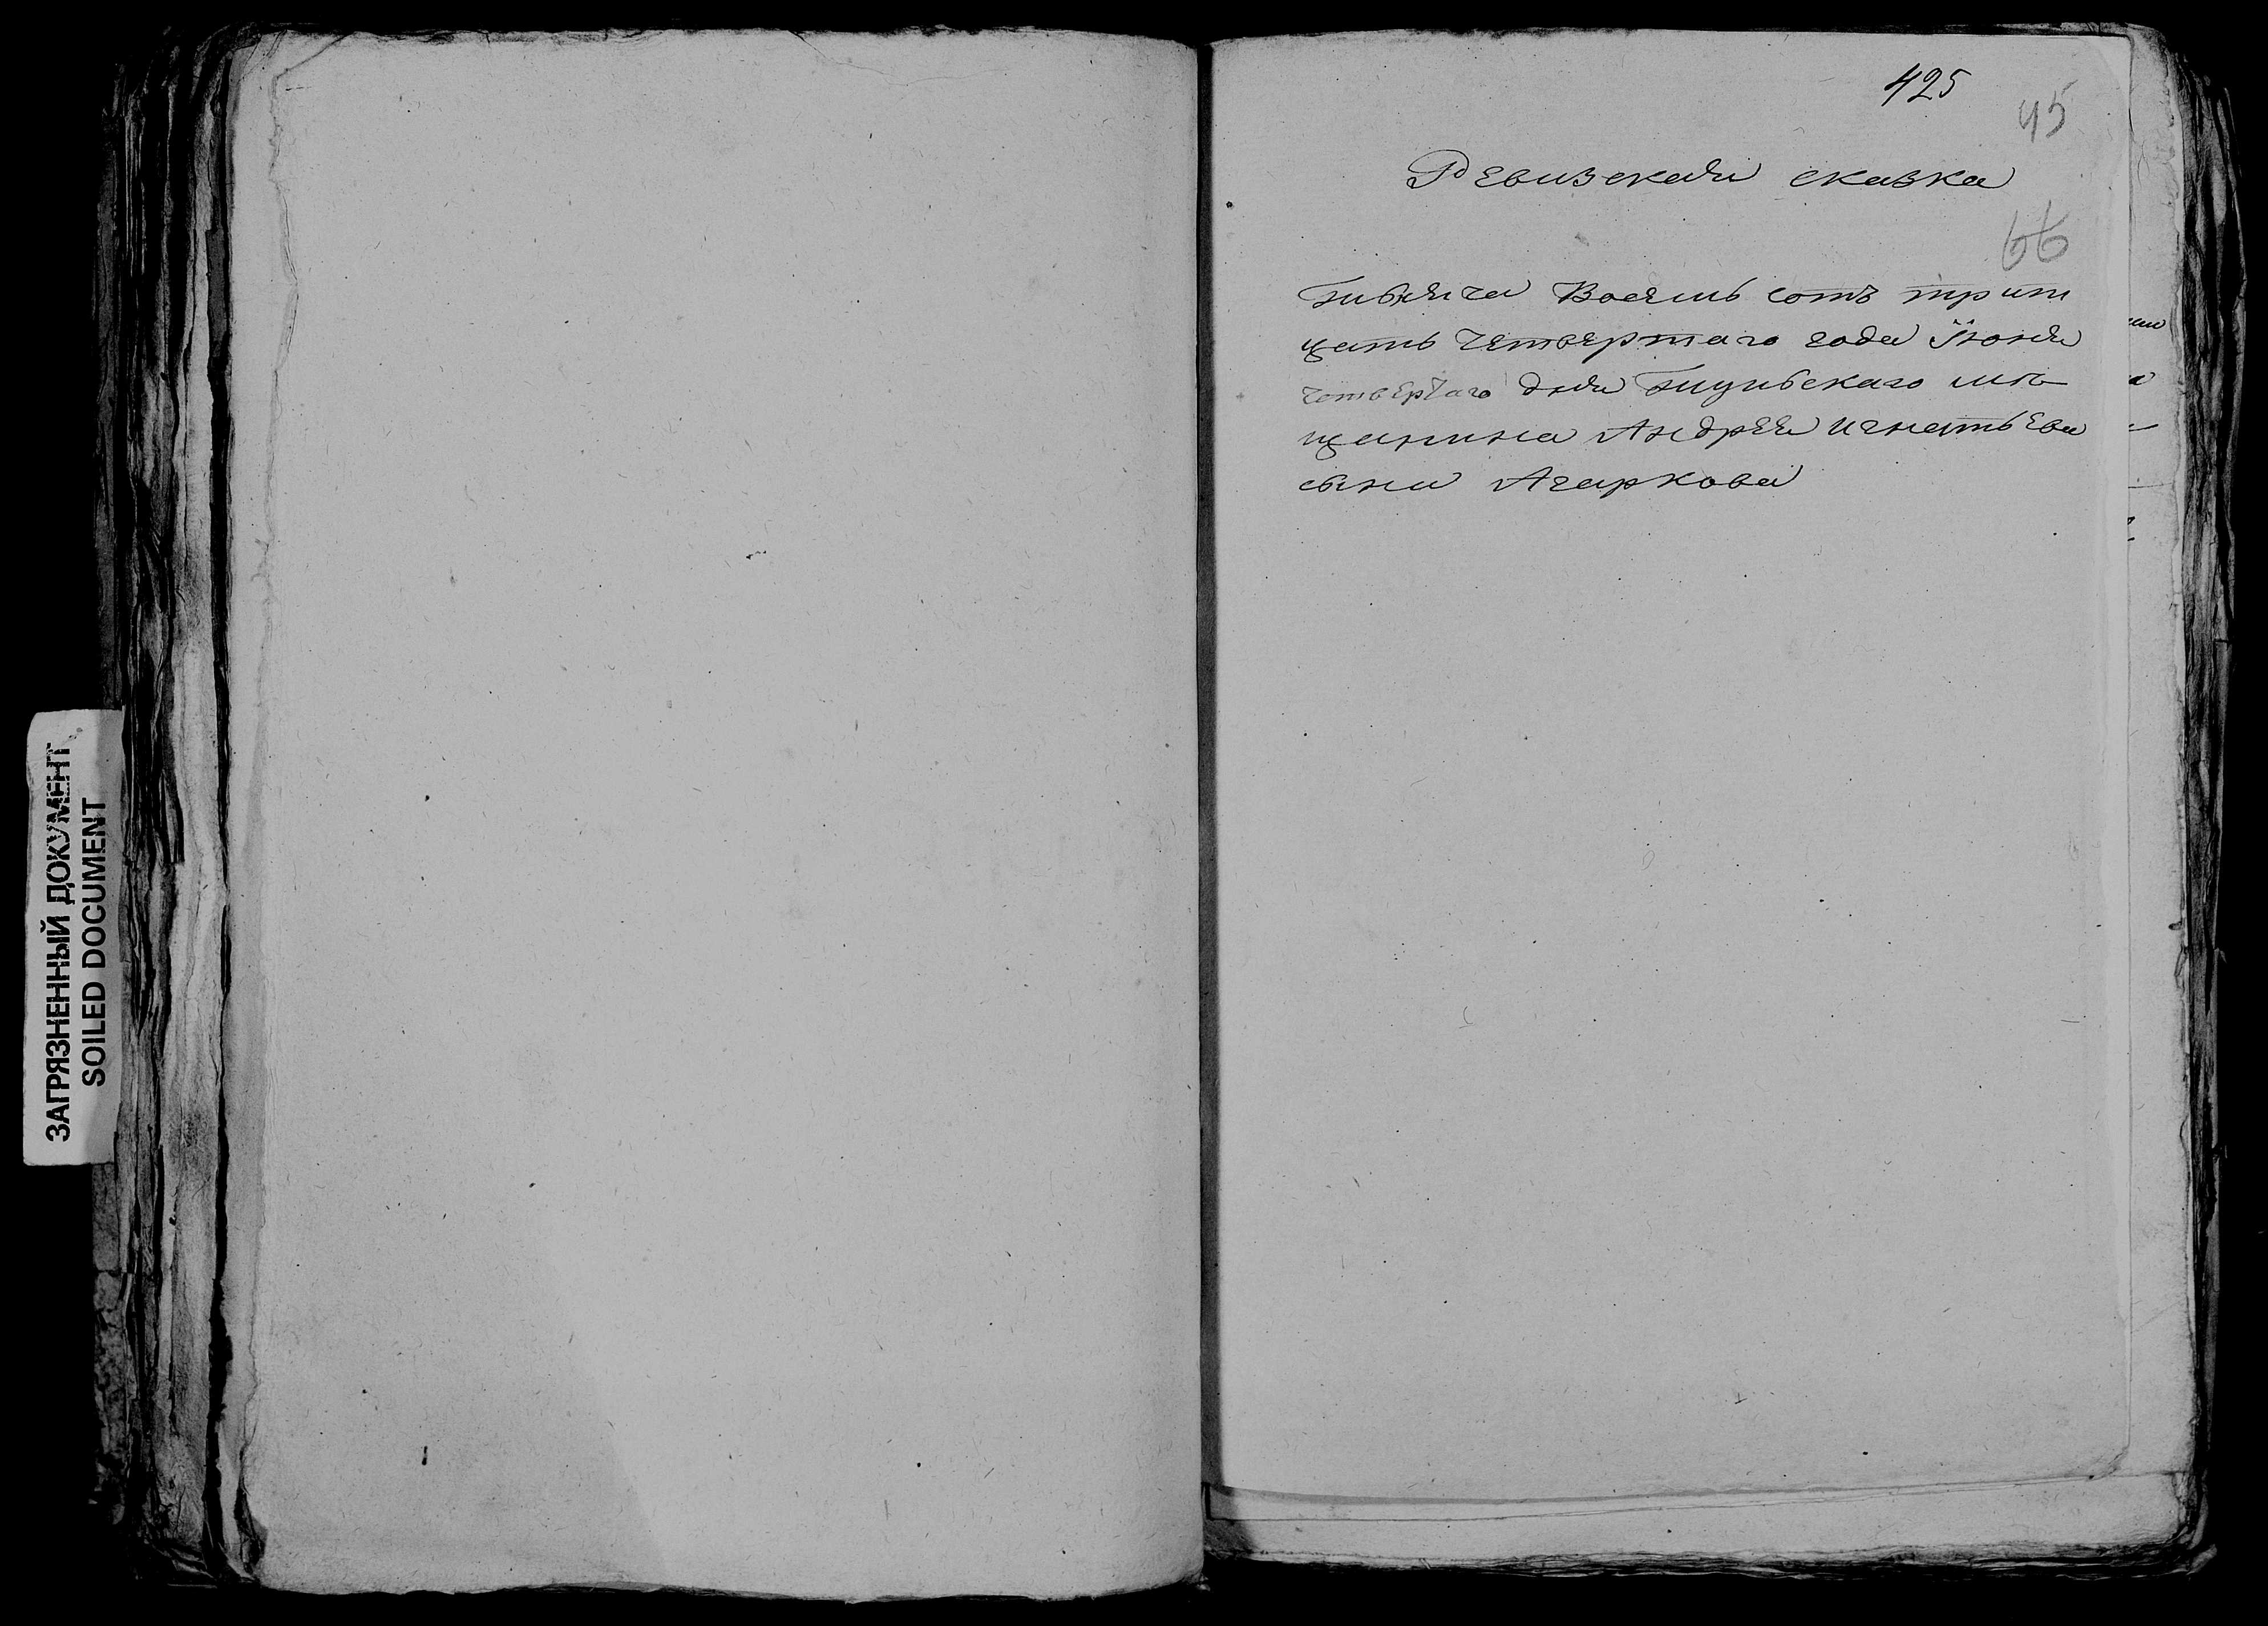 ЗАГРЯЗНЕННЫЙ ДОКУМЕНТ
SOILED DOCUMENT
425
45
Ревизская сказка
66
Тысяча Восемь сотъ трит
цать Четвертаго года Іюня
четвертаго дня мѣ
щанина Андрея Игнатьева
сына Агаркова